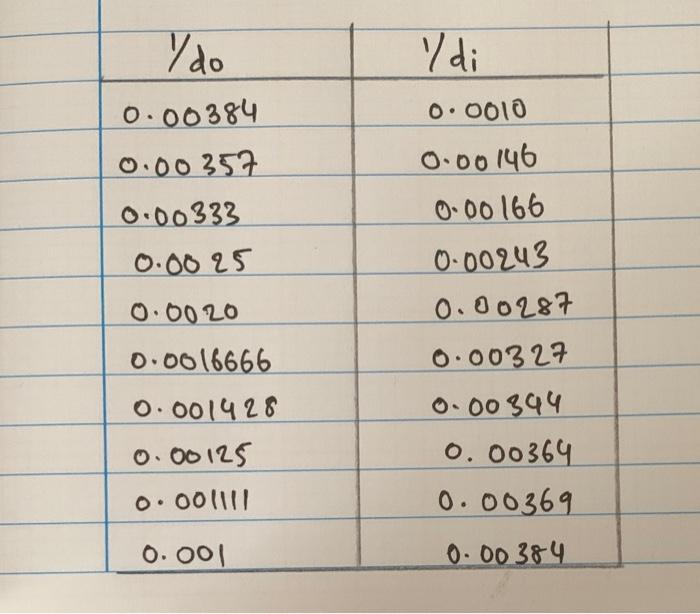 1/do 1/di
0.00384 0.0010
0.00357 0.00146
0.00333 0.00166
0.0025 0.00243
0.0020 0.00287
0.0016666 0.00327
0.001428 0.00344
0.00125 0.00364
0.001111 0.00369
0.001 0.00384